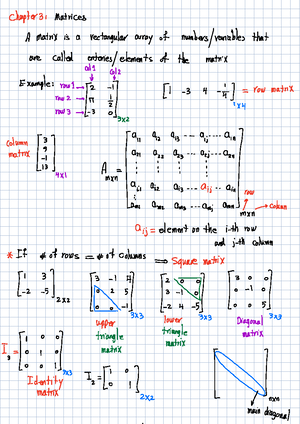 Chapter 3: Matrices
A matrix is a rectangular array of numbers/variables that
are called entries/elements of the matrix
col 1 col 2
Example: row 1 → 2 -1
row 2 → π 1/2
row 3 → -3 0 3x2
[1 -3 4 -1/4] 1x4 = row matrix
column matrix
3
7
-1
13
4x1
A mxn =
a11 a12 a13 ... a1j ... a1n
a21 a22 a23 ... a2j ... a2n
ai1 ai2 ai3 ... aij ... ain
am1 am2 am3 ... amj ... amn mxn
row
column
aij = element on the i-th row
and j-th column
* If # of rows = # of columns ⟹ Square matrix
1 3
-2 -5
2x2
3 -1 4
0 2 5
0 0 -1
3x3
upper triangle matrix
2 0 0
3 -1 0
-2 4 -5
3x3
lower triangle matrix
3 0 0
0 -1 0
0 0 5
3x3
Diagonal matrix
I3 =
1 0 0
0 1 0
0 0 1
3x3
Identity matrix
I2 =
1 0
0 1
2x2
nxn
main diagonal